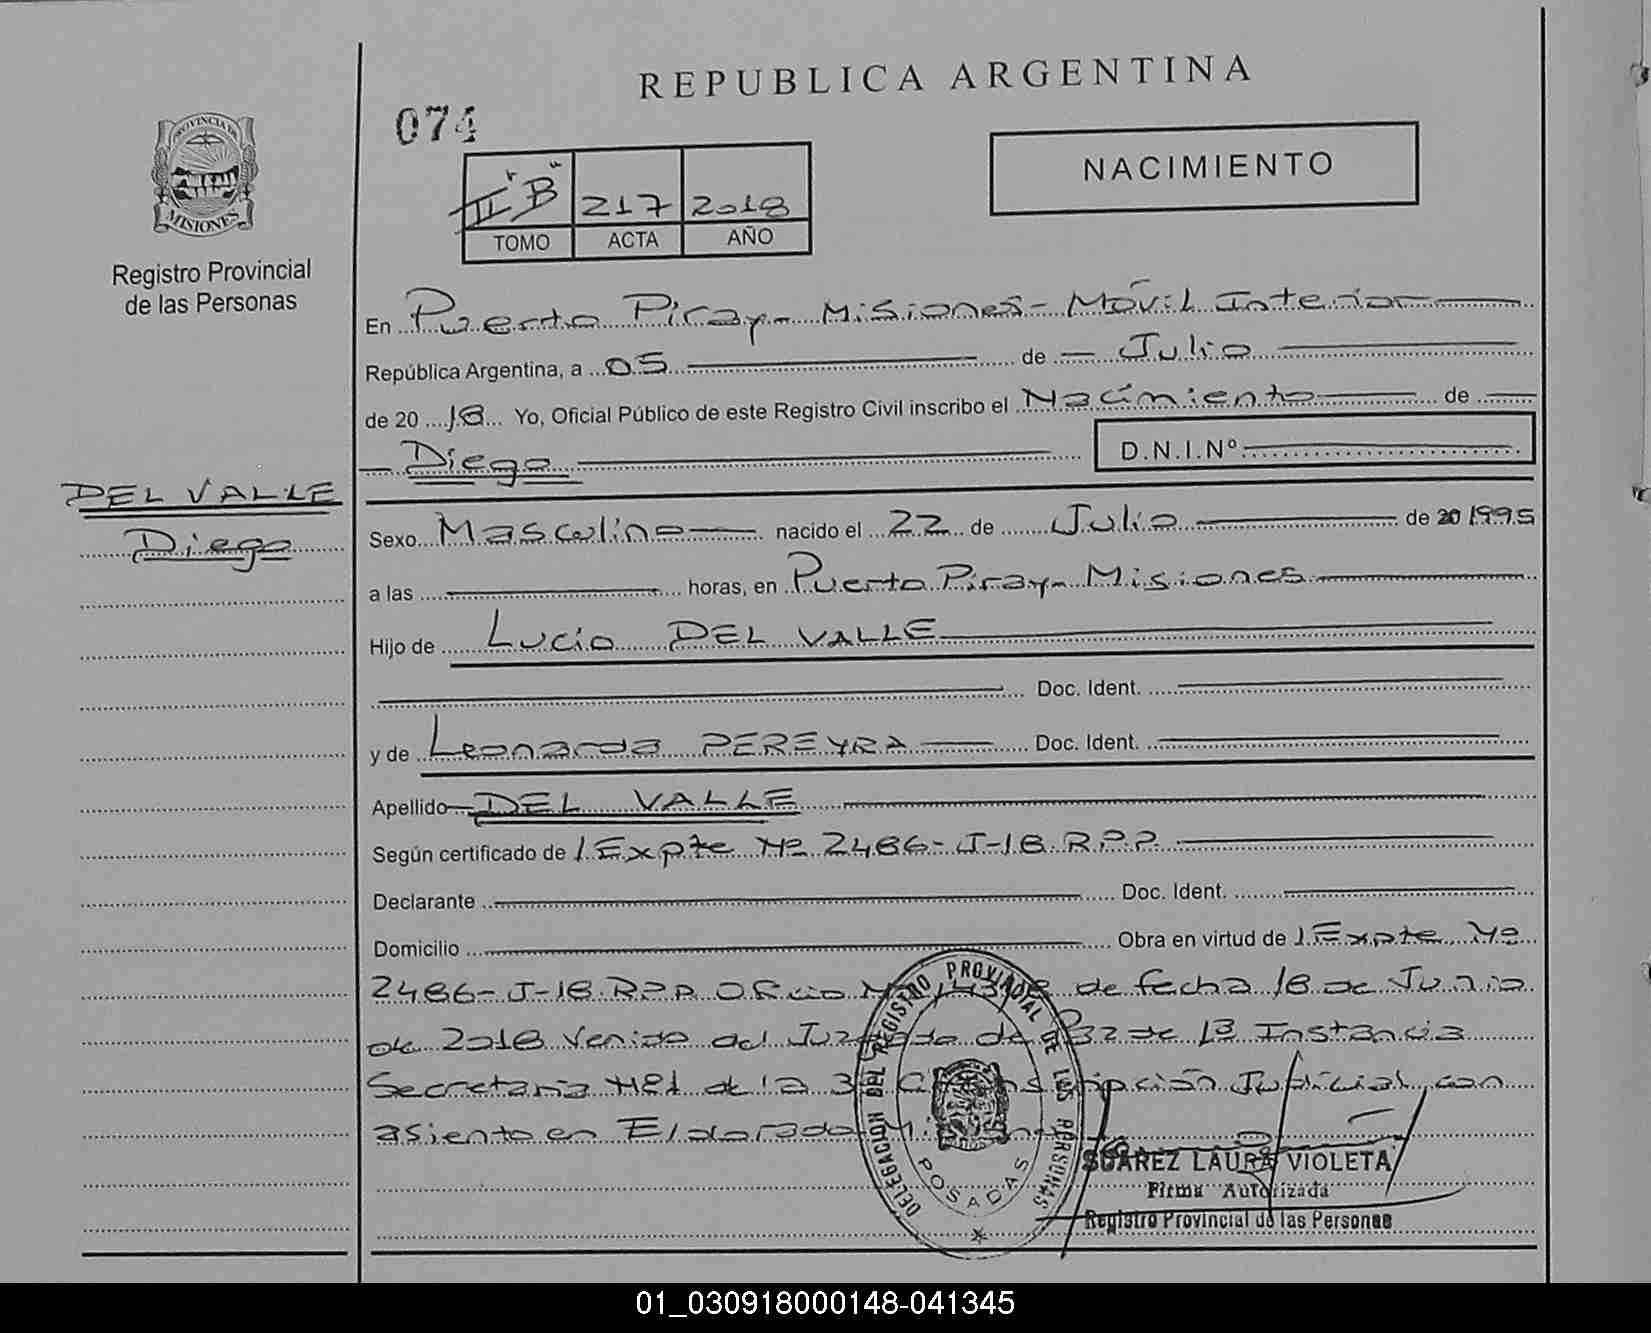 REPUBLICA ARGENTINA
074
NACIMIENTO
II "B" 217 2018
TOMO ACTA AÑO
PROVINCIA DE
MISIONES
Registro Provincial
de las Personas
En Puerto Piray - Misiones - Móvil Interior
República Argentina, a 05 de Julio
de 20 18 Yo, Oficial Público de este Registro Civil inscribo el Nacimiento de
Diego D.N.I.Nº
DEL VALLE
Diego
Sexo Masculino nacido el 22 de Julio de 20 1995
a las horas, en Puerto Piray - Misiones
Hijo de Lucio DEL VALLE
Doc. Ident.
y de Leonarda PEREYRA Doc. Ident.
Apellido DEL VALLE
Según certificado de Expte Nº 2486-J-18 R.P.P.
Declarante Doc. Ident.
Domicilio Obra en virtud de Expte Nº
2486-J-18 R.P.P. Oficio de fecha 18 de Junio
de 2018 Venido del Juzgado de Paz de 1ª Instancia
Secretaria Nº1 de la 3ª Circunscripción Judicial con
asiento en Eldorado
DELEGACION DEL REGISTRO PROVINCIAL DE LAS PERSONAS
POSADAS
SUAREZ LAURA VIOLETA
Firma Autorizada
Registro Provincial de las Personas
01_030918000148-041345